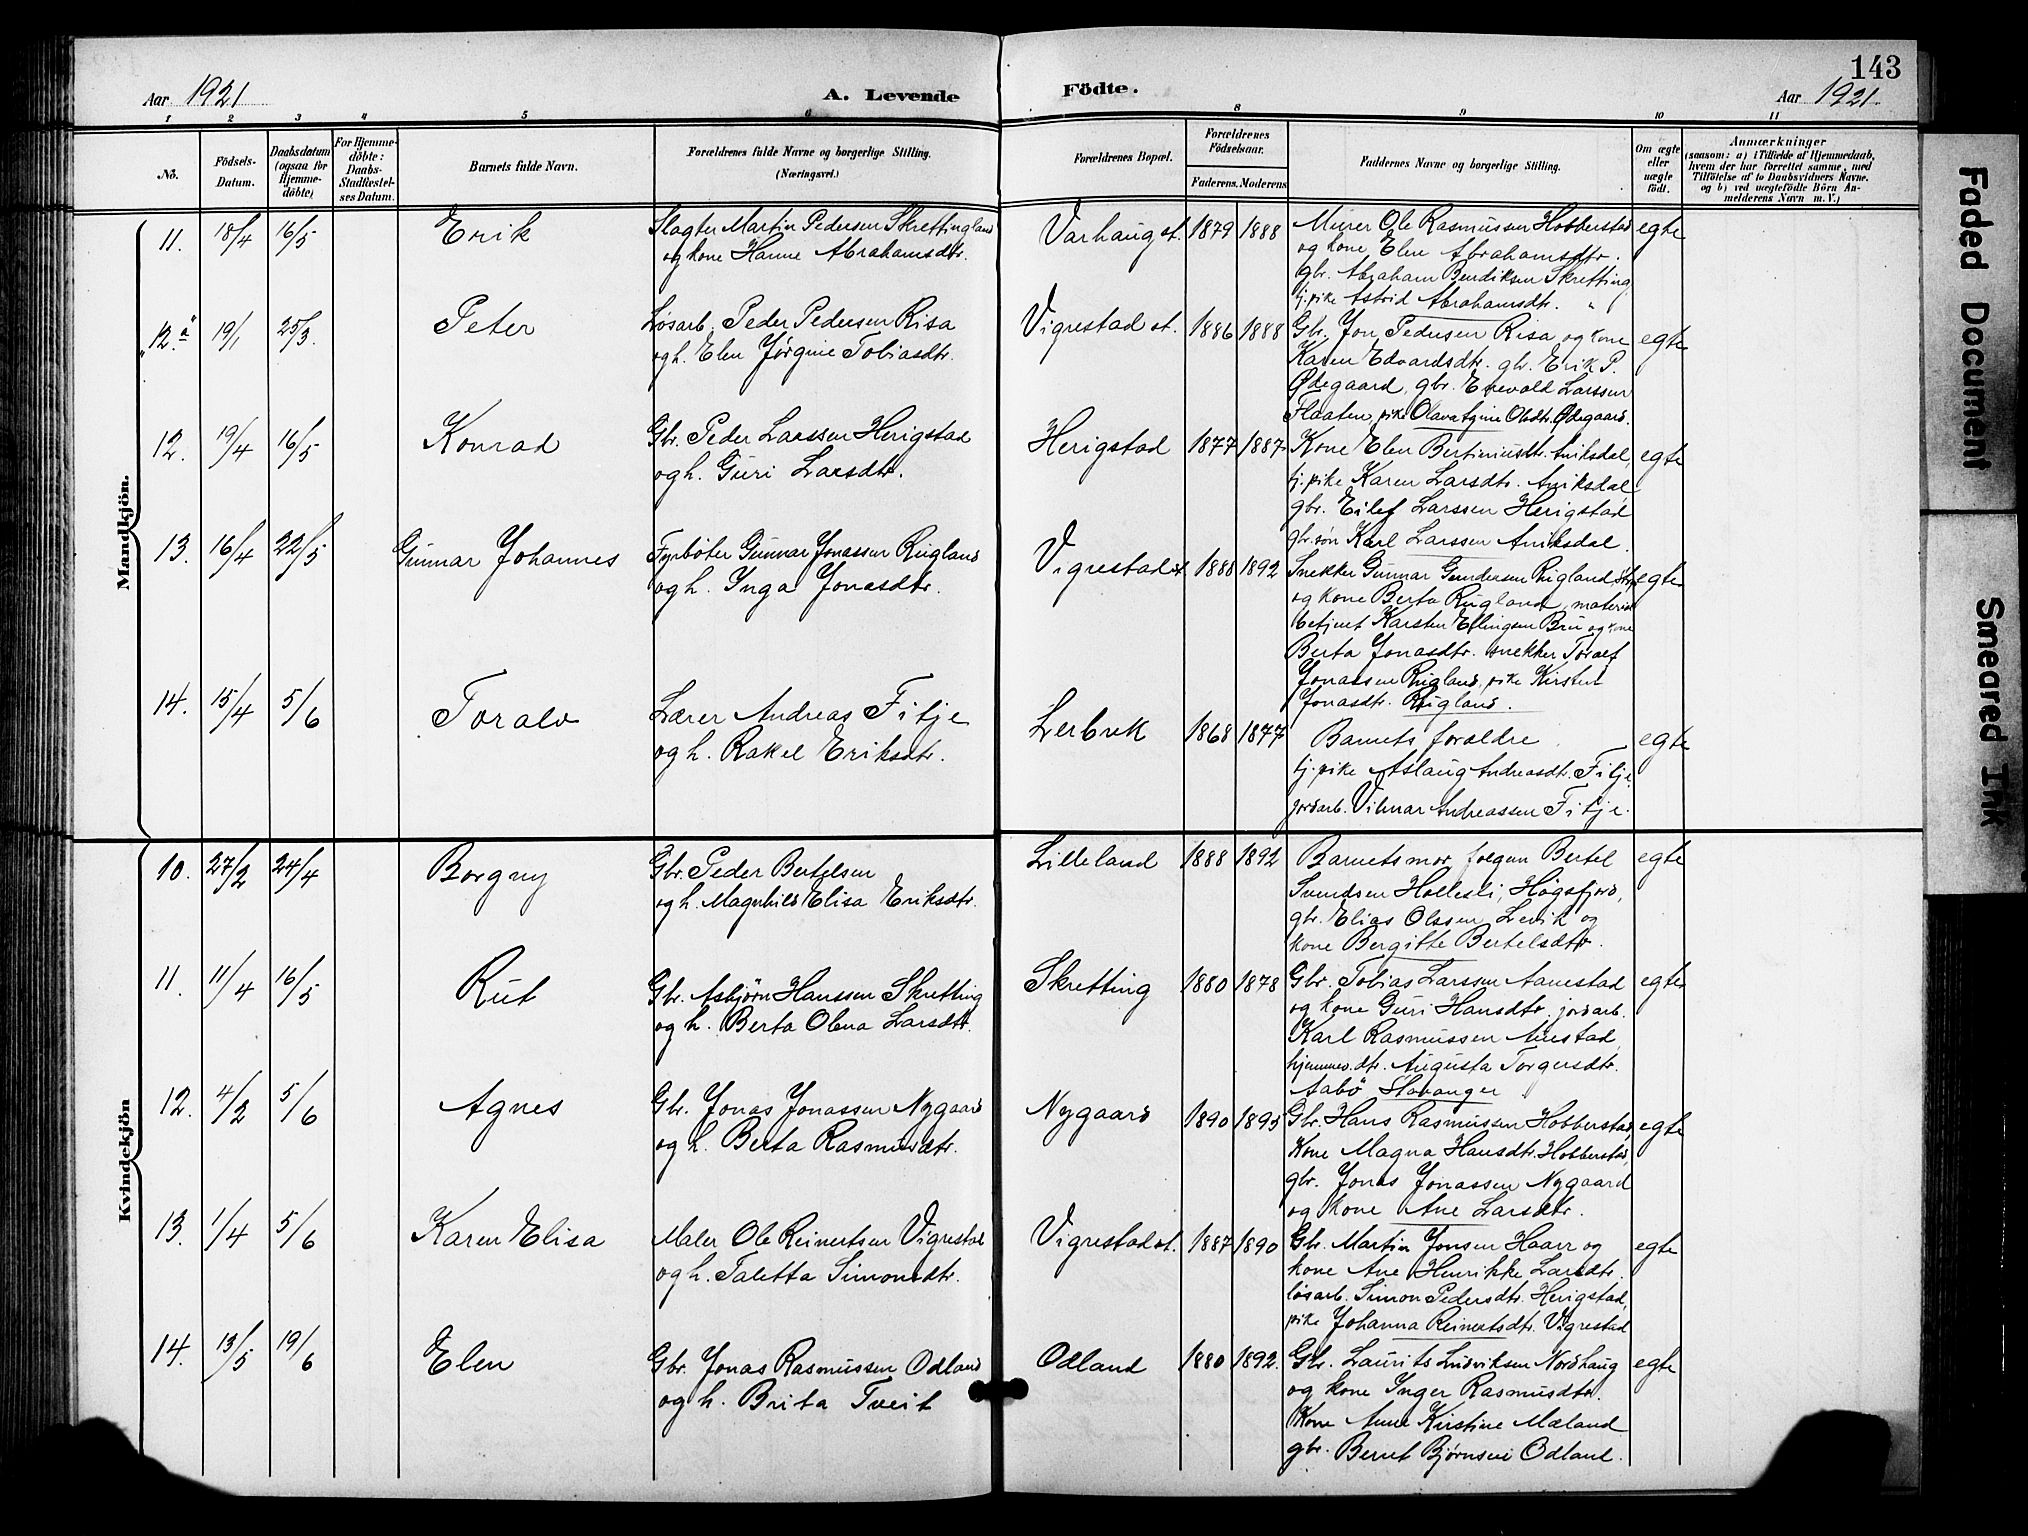 143
Aar 1921 A. Levende Födte. Aar 1921.
1 2 3 4 5 6 8 9 10 11
No.
Födsels-
Datum.
Daabsdatum
(ogsaa for
Hjemme-
döbte)
For Hjemme-
döbte:
Daabs-
Stadfæstel-
ses Datum.
Barnets fulde Navn.
Forældrenes fulde Navne og borgerlige Stilling.
(Næringsvei.)
Forældrenes Bopæl.
Forældrenes
Födselsaar.
Faderens. Moderens
Faddernes Navne og borgerlige Stilling.
Om ægte
eller
uægte
födt.
Anmærkninger
(saasom: a) i Tilfælde af Hjemmedaab,
hvem der har forrettet samme, med
Tilföielse af to Daabsvidners Navne.
og b) ved uægtefödte Börn An-
melderens Navn m. V.)
Mandkjön.
11. 18/4 16/5 Erik Slagter Martin Pedersen Skrettingland Varhaug st. 1879 1888 Murer Ole Rasmussen Hobberstad egte
og kone Hanne Abrahamsdtr. og kone Elen Abrahamsdtr.
gbr. Abraham Bendiksen Skretting
tj.pike Astrid Abrahamsdtr. "
"12.a" 19/1 25/3. Peter Løsarb. Peder Pedersen Risa Vigrestad st. 1886 1888 Gbr. Jon Pedersen Risa og kone egte
og h. Elen Jørgine Tobiasdtr. Karen Edvardsdtr. gbr. Erik P.
Ødegaard, gbr. Enevold Larssen
Flaaten, pike Olava Olsdtr. Ødegaard.
12. 19/4 16/5 Konrad Gbr. Peder Larssen Herigstad Herigstad 1877 1887 Kone Elen Bertiniusdtr. Aniksdal, egte
og h. Guri Larsdtr. tj.pike Karen Larsdtr. Aniksdal
gbr. Eilef Larssen Herigstad
gbr.søn Karl Larssen Aniksdal.
13. 16/4 22/5 Gunnar Johannes Fyrbøter Gunnar Jonassen Rugland Vigrestad st 1888 1892 Snekker Gunnar Gundersen Rugland egte
og h. Inga Jonasdtr. og kone Berta Rugland, material
betjent Karsten Ellingsen Bru og kone
Berta Jonasdtr. snekker Toralf
Jonassen Rugland, pike Kirsten
Jonasdtr. Rugland.
14. 15/4 5/6 Toralv Lærer Andreas Fitje Lerbrek 1868 1877 Barnets foraldre egte
og h. Rakel Eriksdtr. tj.pike Aslaug Andreasdtr. Fitje.
jordarb. Vilmar Andreassen Fitje.
Kvindekjön
10. 27/2 24/4 Borgny Gbr. Peder Bertelsen Lilleland 1888 1892 Barnets mor, Bertel egte
og h. Magnhild Elisa Eriksdtr. Svendsen Hollesli, Høgsfjord,
gbr. Elias Olssen, og
kone Bergitte Bertelsdtr.
11. 11/4 16/5 Rut Gbr. Asbjørn Hanssen Skretting Skretting 1880 1878 Gbr. Tobias Larssen Aanestad egte
og h. Berta Olena Larsdtr. og kone Guri Hansdtr. jordarb.
Karl Rasmussen Auestad,
hjemmev. dtr. Augusta Torgersdtr.
Aabø Stavanger
12. 4/2 5/6 Agnes Gbr. Jonas Jonassen Nygaard Nygaard 1890 1895 Gbr. Hans Rasmussen Hobberstad, egte
og h. Berta Rasmusdtr. Kone Magna Hansdtr. Hobberstad,
gbr. Jonas Jonassen Nygaard
og kone Ane Larsdtr.
13. 1/4 5/6 Karen Elisa Maler Ole Reinertsen Vigrestad Vigrestad st. 1887 1890 Gbr. Martin Jonsen Haarr og egte
og h. Taletta Simonsdtr. kone Ane Henrikke Larsdtr.
løsarb. Simon Pedersdtr. Herigstad,
pike Johanna Reinertsdtr. Vigrestad
14. 13/5 19/6 Elen Gbr. Jonas Rasmussen Odland Odland 1880 1892. Gbr. Laurits Ludviksen Nordhaug egte
og h. Brita Tveit og kone Inger Rasmusdtr.
Kone Anne Kirstine Mæland
gbr. Bernt Bjørnsen Odland.
Faded Document
Smeared Ink